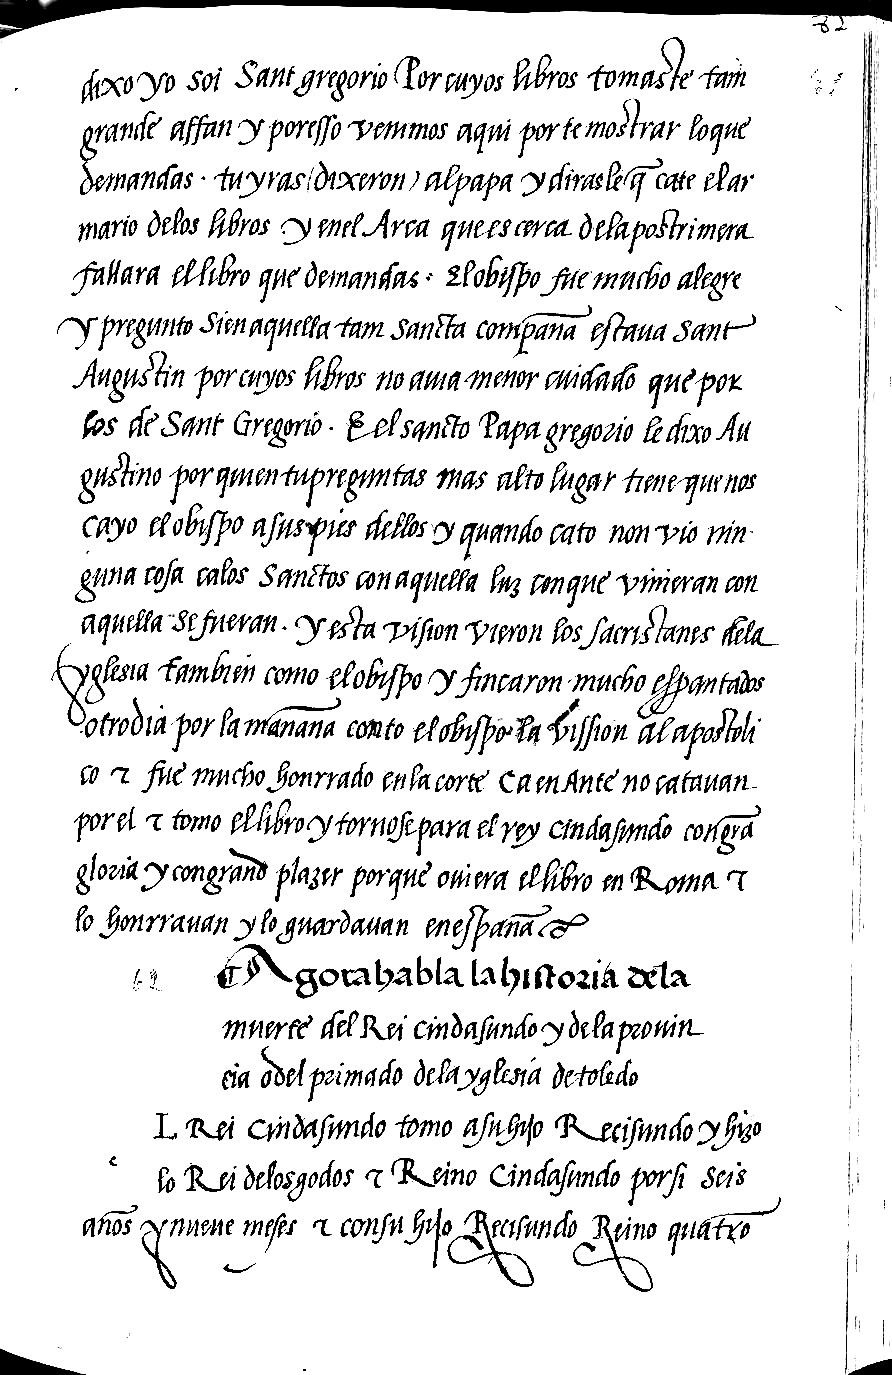 82
dixo yo soi Sant gregorio Por cuyos libros tomaste tam
grande affan y poresso venimos aqui por te mostrar lo que
demandas · tu yras (dixeron) al papa y dirasle q̃ cate el ar
mario delos libros y enel Arca que es cerca dela postrimera
fallara el libro que demandas · El obispo fue mucho alegre
y pregunto Si en aquella tam sancta compan̄a estaua Sant
Augustin por cuyos libros no auia menor cuidado que por
los de Sant Gregorio · E el sancto Papa gregorio le dixo Au
gustino por quien tu preguntas mas alto lugar tiene que nos
Cayo el obispo a sus pies dellos y quando cato non vio nin
guna cosa calos Sanctos con aquella luz con que vinieran con
aquella se fueran · y esta vision vieron los sacristanes dela
yglesia tambien como el obispo y fincaron mucho espantados
otro dia por la man̄ana conto el obispo la vission al apostoli
co τ fue mucho honrrado en la corte Ca en Ante no catauan
por el τ tomo el libro y tornose para el rey cindasundo con gra
gloria y con grand plazer porque ouiera el libro en Roma τ
lo honrrauan y lo guardauan en espan̄a
62
Agora habla la historia dela
muerte del Rei cindasundo y de la prouin
cia o del primado de la yglesia de toledo
L Rei Cindasundo tomo a su hijo Recisundo y hizo
e
lo Rei de los godos τ Reino Cindasundo por si seis
an̄os y nueue meses τ con su hijo Recisundo Reino quatro